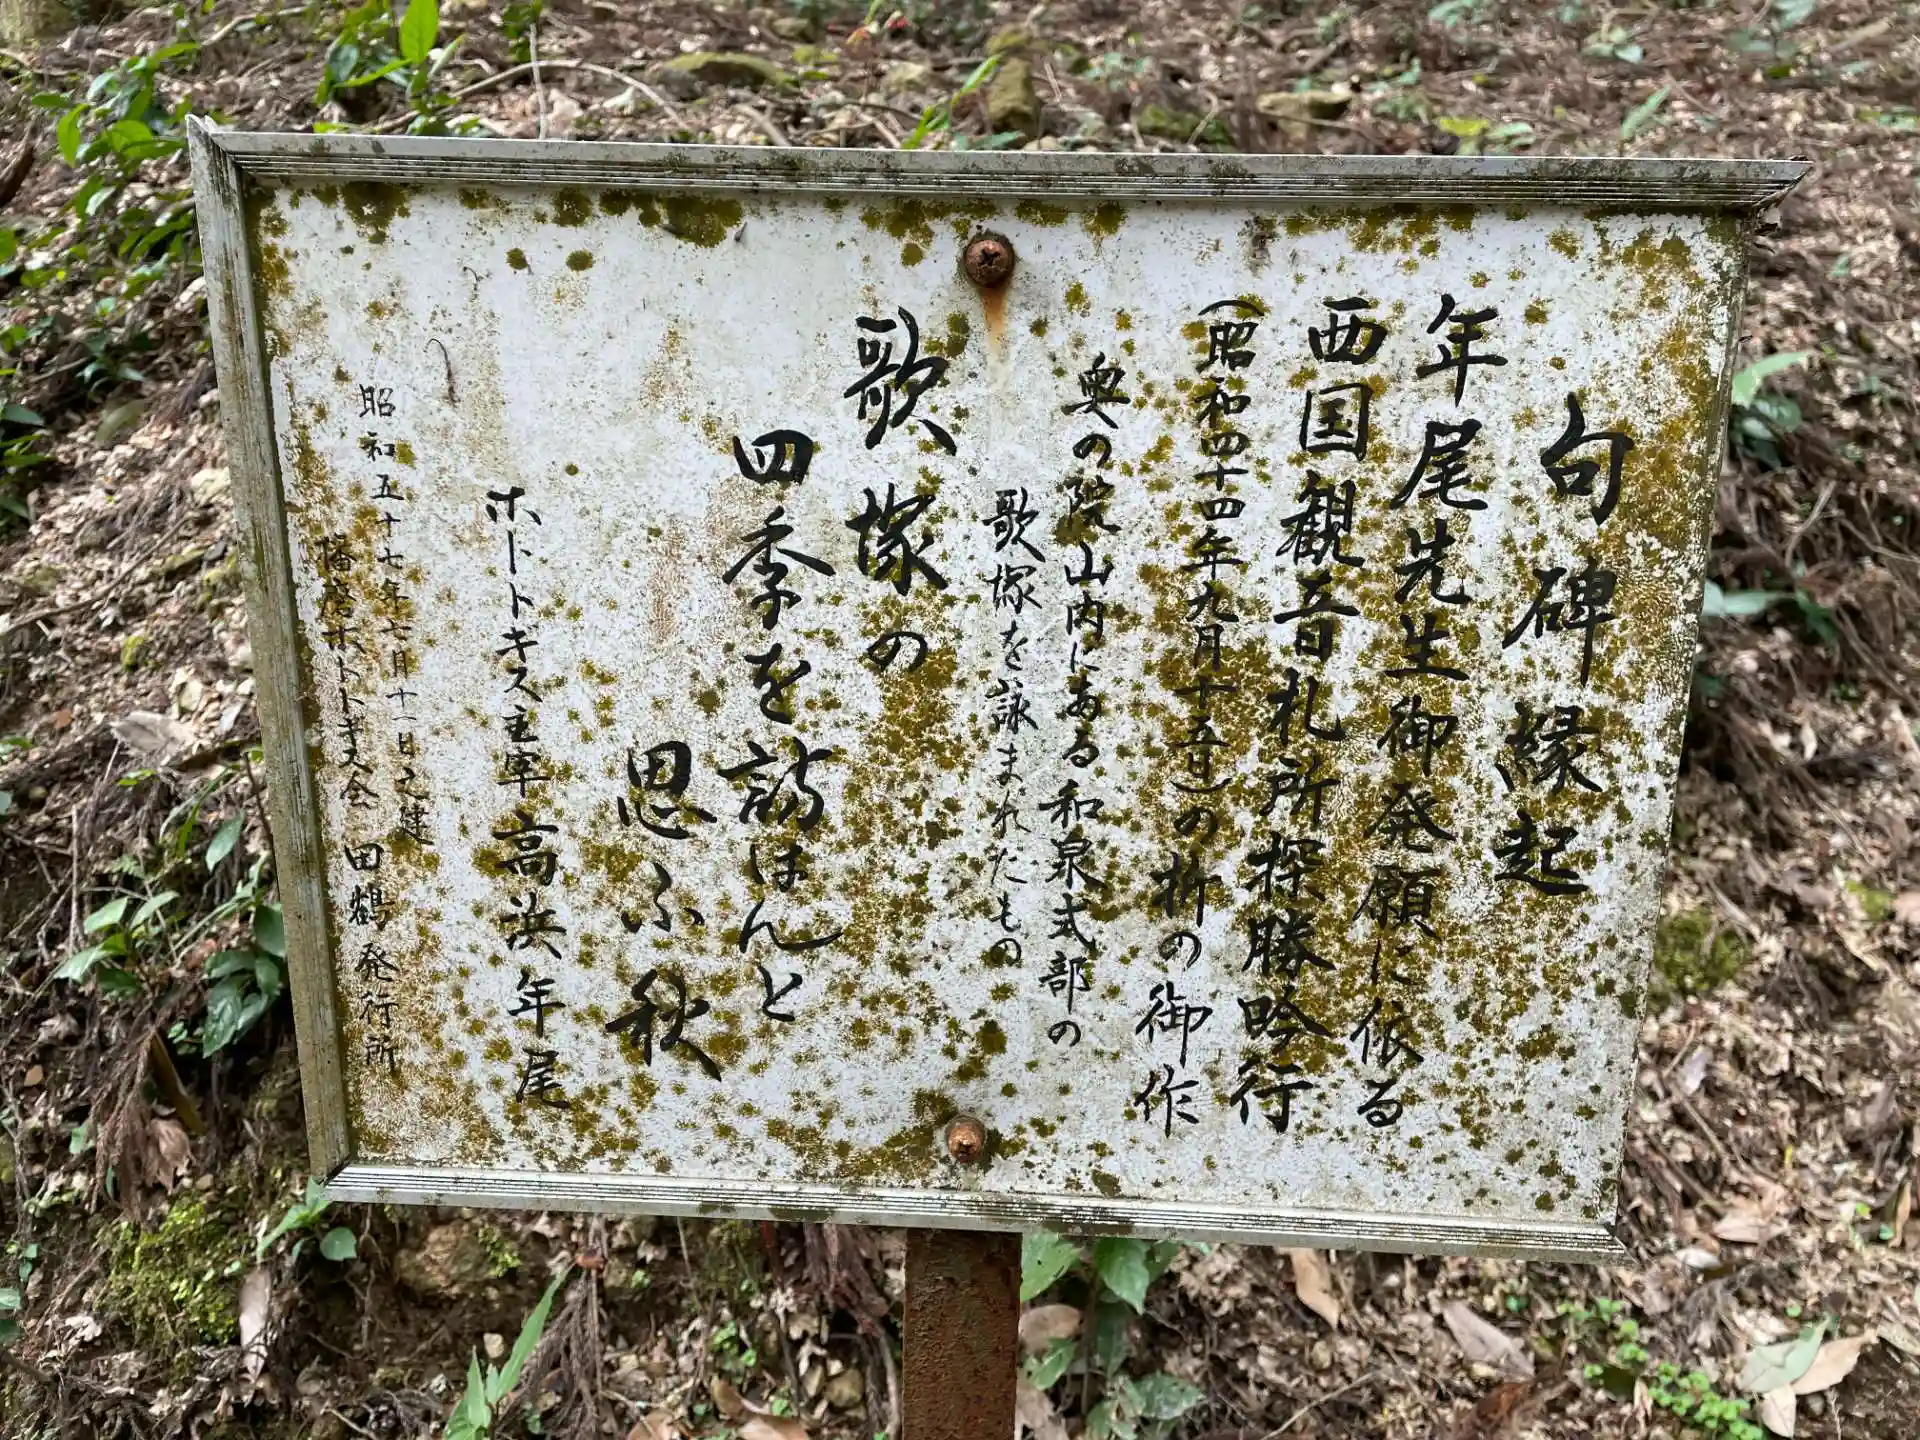 句碑縁起
年尾先生御発願に依る
西国観音札所探勝吟行
(昭和四十四年九月十五日)の折の御作
奥の院山内にある和泉式部の
歌塚を詠まれたもの
歌塚の
四季を訪はんと
思ふ秋
ホトトギス主宰 高浜年尾
昭和五十七年七月十一日之建
播磨ホトトギス会 田鶴発行所